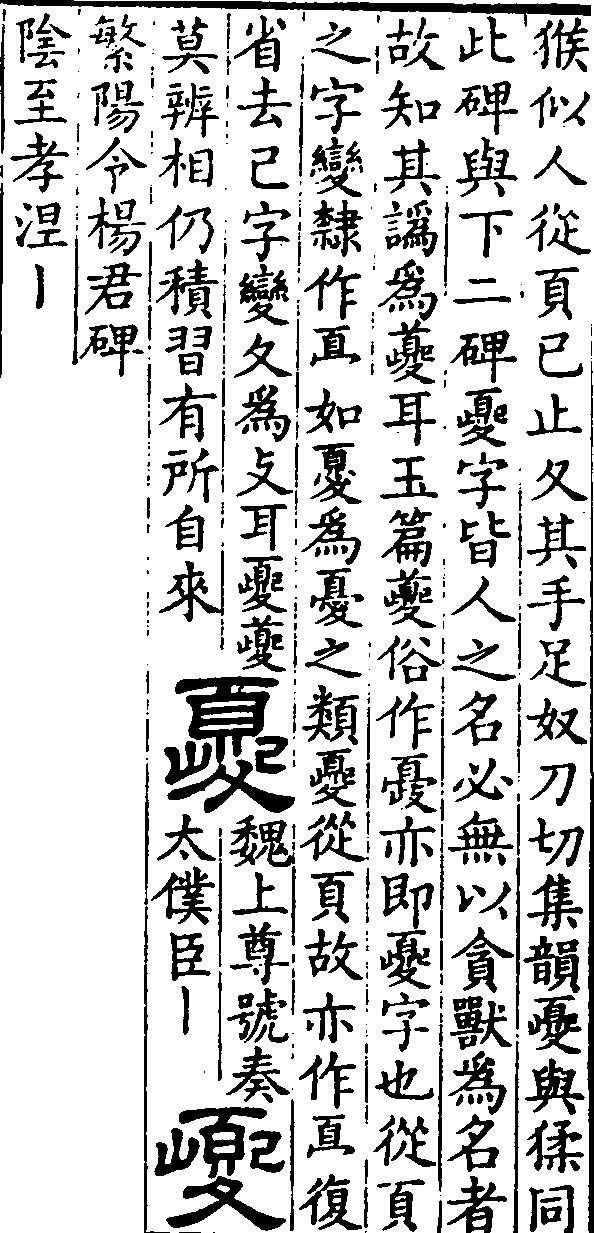 猴似人從頁已止夊其手足奴刀切集韻夒與猱同
此碑與下二碑夒字皆人之名必無以貪獸爲名者
故知其譌爲夔耳玉篇夔俗作亦即夒字也從頁
之字變隸作𦣻如爲憂之類夒從頁故亦作𦣻復
省去已字變夊爲攴耳夒夔
莫辨相仍積習有所自來
夒
魏上尊號奏
太僕臣丨
夒
繁陽令楊君碑
陰至孝涅丨